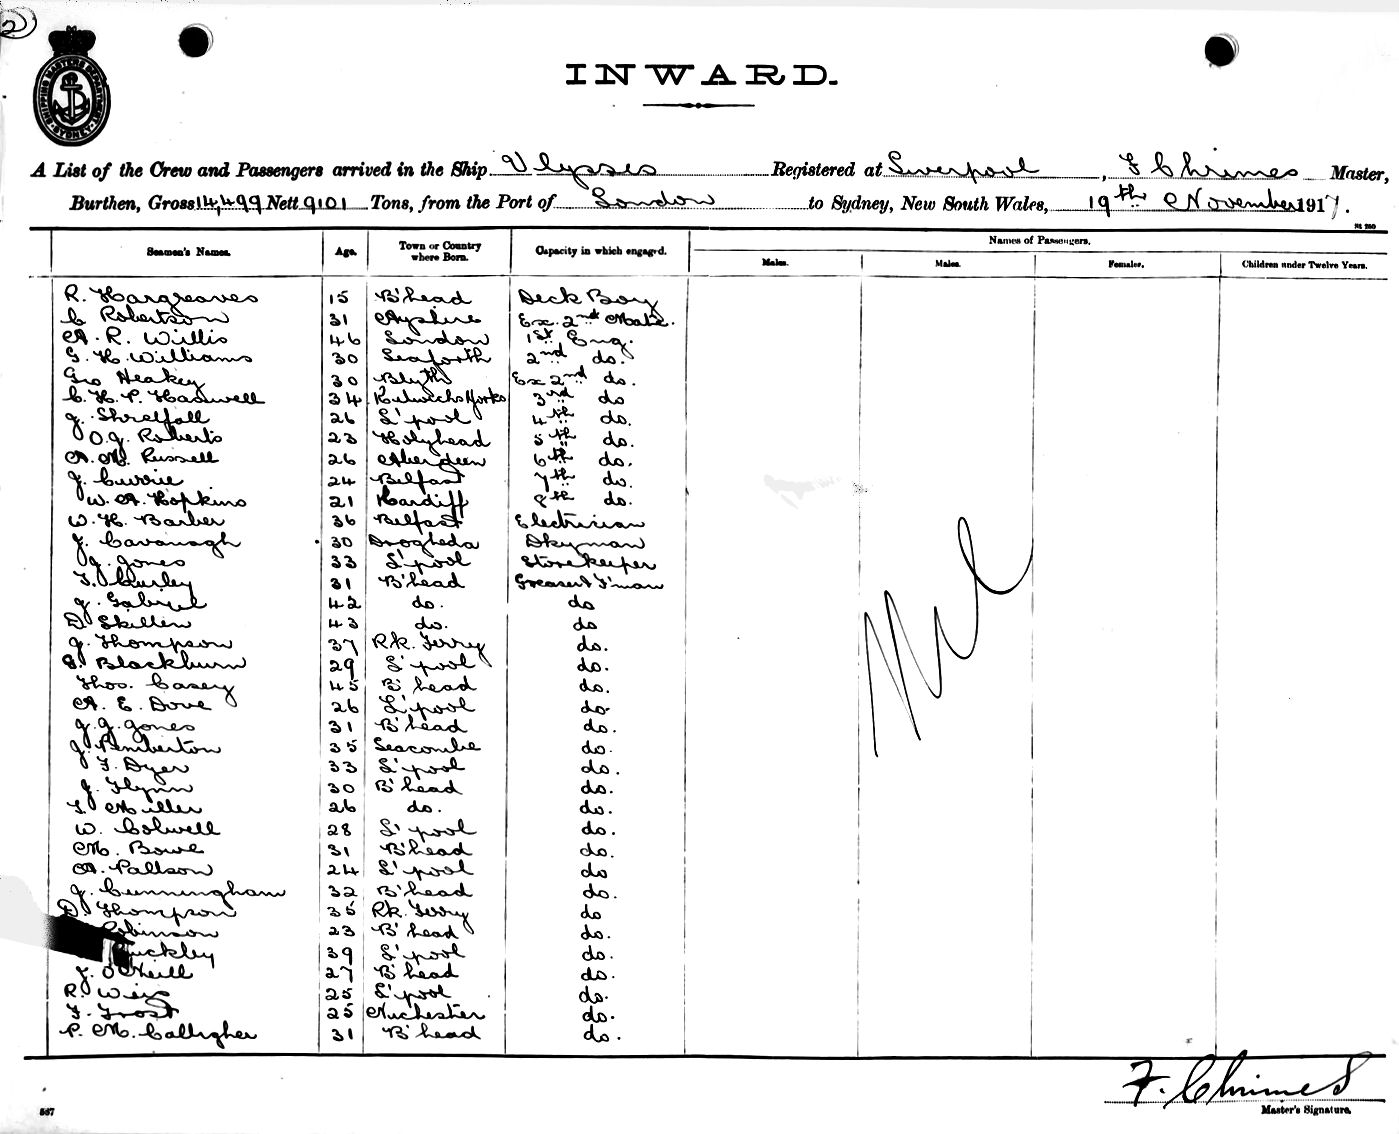 2
SHIPPING MASTERS DEPARTMENT SYDNEY
INWARD.
A List of the Crew and Passengers arrived in the Ship Ulysses Registered at Liverpool, F Chrimes Master,
Burthen, Gross 14,499 Nett 9101 Tons, from the Port of London to Sydney, New South Wales, 19th November 1917.
Seamen's Names. Age. Town or Country where Born. Capacity in which engaged. Names of Passengers.
Males. Males. Females. Children under Twelve Years.
R. Hargreaves 15 B'head Deck Boy
C Robertson 31 Ayshire Ex. 2nd Mate.
A. R. Willis 46 London 1st Eng.
G. H. Williams 30 Seaforth 2nd do.
Geo Heakey 30 Blyth Ex 2nd do.
C. H. P. 34 3rd do
J. Threlfall 26 L'pool 4th do.
O. J. Roberts 23 Holyhead 5th do.
A. M. Russell 26 Aberdeen 6th do.
J. Currie 24 Belfast 7th do.
W. A. Hopkins 21 Cardiff 8th do.
W. H. Barber 36 Belfast Electrician
J. Cavanagh 30 Drogheda Dkyman
J. Jones 33 L'pool Storekeeper
T. Curley 31 B'head Greaser & F'man
J. Gabriel 42 do. do
D. Skillen 43 do. do
J. Thompson 37 Rk. Ferry do.
S. Blackburn 29 L'pool do.
Thos. Casey 45 B'head do.
A. E. Dove 26 L'pool do.
J. J. Jones 31 B'head do.
J. Pemberton 35 Seacombe do.
F. Dyer 33 L'pool do.
J. Flynn 30 B'head do.
T. Miller 26 do. do.
W. Colwell 28 L'pool do.
M. Bowe 31 B'head do.
A. Pallson 24 L'pool do
J. Cunningham 32 B'head do.
D. Thompson 35 Rk. Ferry do
Robinson 23 B'head do.
Buckley 39 L'pool do.
J. O'Neill 27 B'head do.
R. Weir 25 L'pool do.
F. Frost 25 do.
P. M. Callagher 31 B'head do.
Nil
F. Chrimes
Master's Signature.
567